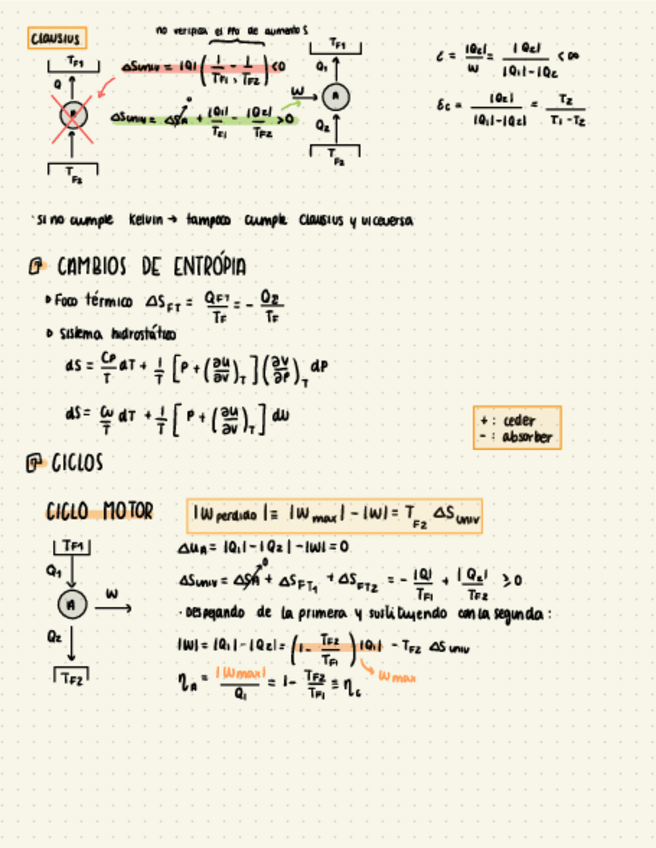 no verifica el ppo de aumento S
CLAUSIUS
T_F1
Q
A
T_F2
ΔSuniv = |Q| (1/T_F1 - 1/T_F2) <0
ΔSuniv = ΔS_A→0 + |Q₁|/T_F1 - |Q₂|/T_F2 >0
T_F1
Q₁
W
A
Q₂
T_F2
ε = |Q₂|/W = |Q₂|/(|Q₁|-|Q₂|) < ∞
ε_c = |Q₂|/(|Q₁|-|Q₂|) = T₂/(T₁-T₂)
· si no cumple Kelvin → tampoco cumple Clausius y viceversa
CAMBIOS DE ENTRÓPIA
Foco térmico ΔS_FT = Q_FT/T_F = - Q_Σ/T_F
Sistema hidrostático
dS = Cp/T dT + 1/T [P + (∂u/∂v)_T] (∂v/∂p)_T dP
dS = Cv/T dT + 1/T [P + (∂u/∂v)_T] dv
+ : ceder
- : absorber
CICLOS
CICLO MOTOR
|W perdido| ≡ |W max| - |W| = T_F2 ΔSuniv
T_F1
Q₁
A
W
Q₂
T_F2
ΔU_A = |Q₁| - |Q₂| - |W| = 0
ΔSuniv = ΔS_A→0 + ΔS_FT1 + ΔS_FT2 = - |Q|/T_F1 + |Q₂|/T_F2 ≥ 0
· Despejando de la primera y sustituyendo con la segunda:
|W| = |Q₁| - |Q₂| = (1 - T_F2/T_F1) |Q₁| - T_F2 ΔSuniv
W max
η_A = |W max|/Q₁ = 1 - T_F2/T_F1 ≡ η_c